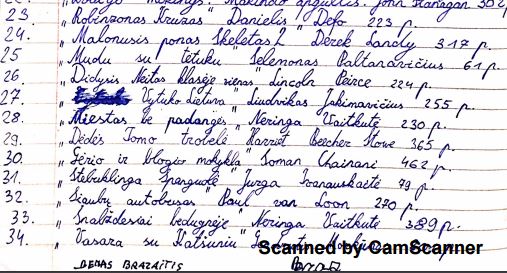 apgultis." John Flanagan 302
23. "Robinzonas Kruzas" Danielis Defo 223 p.
24. "Malonusis ponas Skeletas 2" Derek Landy 317 p.
25. "Mudu su tetuku" Selemonas Paltanavičius 61 p.
26. "Didysis Neitas klasėje vienas" Lincoln Peirce 224 p.
27. "Vytuko Lietuva" Liudvikas Jakimavičius 255 p.
28. "Miestas be padangės" Neringa Vaitkutė 230 p.
29. "Dėdės Tomo trobelė" Harriet Beecher Stowe 365 p.
30. "Gėrio ir blogio mokykla" Soman Chainani 462 p.
31. "Stebuklinga Spanguolė" Jurga Ivanauskaitė 79 p.
32. "Siaubų autobusas" Paul van Loon 270 p.
33. "Šnabždesiai bedugnėje" Neringa Vaitkutė 389 p.
34. "Vasara su Katšiuniu"
Scanned by CamScanner
BENAS BRAZAITIS